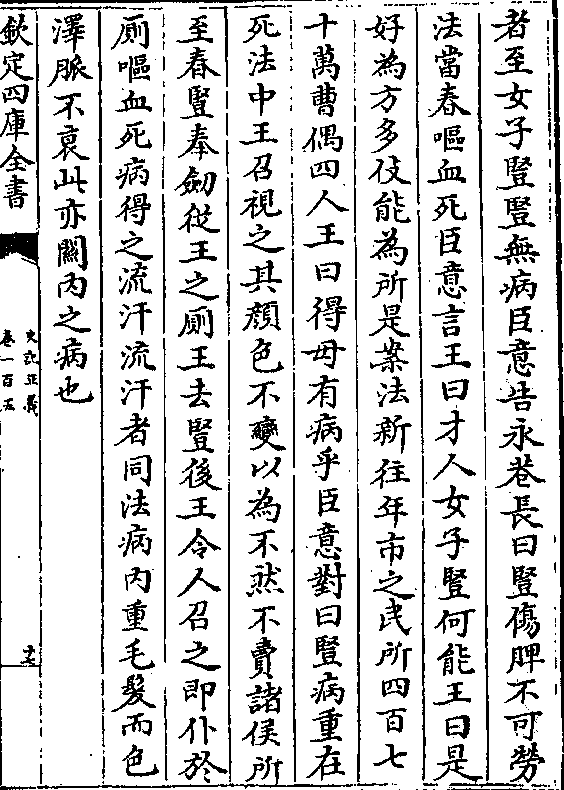 者至女子豎豎無病臣意告永巷長曰豎傷脾不可勞
法當春嘔血死臣意言王曰才人女子豎何能王曰是
好為方多伎能為所是案法新往年市之民所四百七
十萬曹偶四人王曰得毋有病乎臣意對曰豎病重在
死法中王召視之其顔色不變以為不然不賣諸侯所
至春豎奉劒從王之厠王去豎後王令人召之即仆於
厠嘔血死病得之流汗流汗者同法病内重毛髮而色
澤脈不衰此亦關内之病也
欽定四庫全書
史記正義
卷一百五
十七